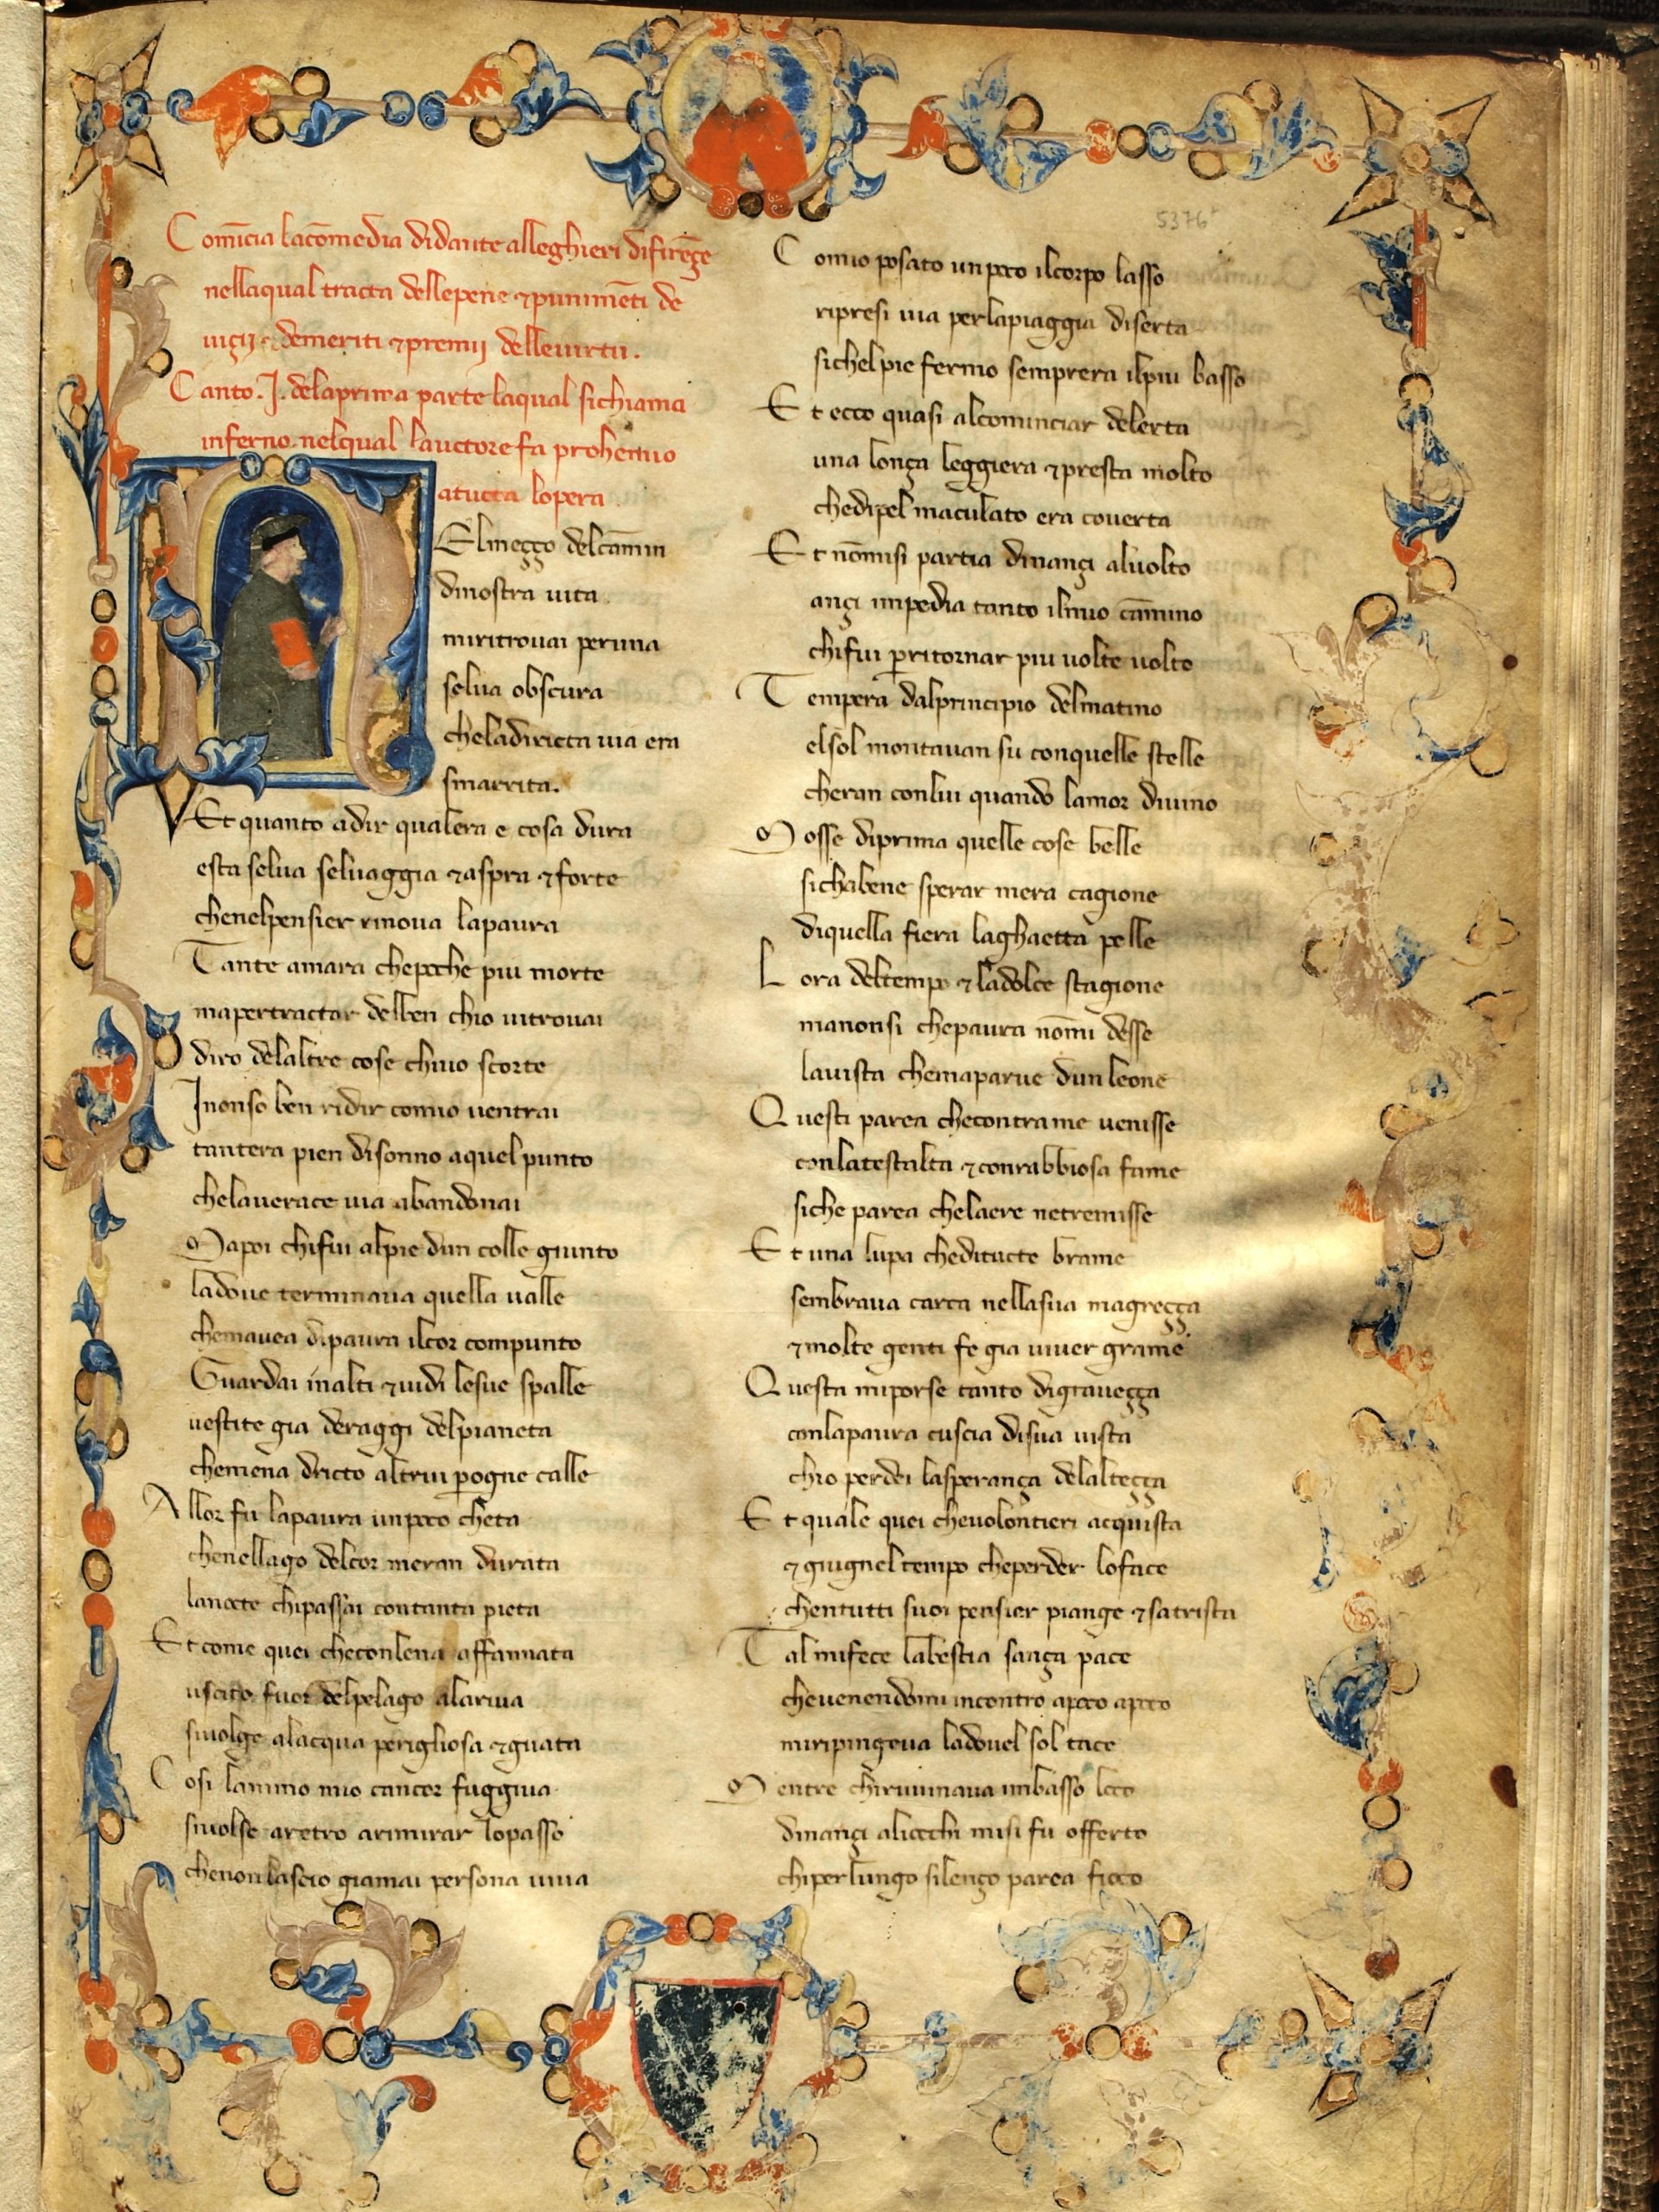 Comīcia lacōmedia didante alleghieri difirēçe
nellaqual tracta dellepene ⁊punimēti de
uiçij ⁊demeriti ⁊premij delleuirtu.
Canto .I. delaprima parte laqual sichiama
inferno nelqual lauctore fa prohemio
atucta lopera
NElmeçço delcāmin
dinostra uita
miritrouai peruna
selua obscura
cheladiricta uia era
smarrita.
Et quanto adir qualera e cosa dura
esta selua seluaggia ⁊aspra ⁊forte
chenelpensier rinoua lapaura
Tante amara chepoche piu morte
mapertractar delben chio uitrouai
diro delaltre cose chiuo scorte
Inonso ben ridir comio uentrai
tantera pien disonno aquel punto
chelauerace uia abandonai
Mapoi chifui alpie dun colle giunto
ladoue terminaua quella ualle
chemauea dipaura ilcor compunto
Guardai inalti ⁊uidi lesue spalle
uestite gia deraggi delpianeta
chemena dricto altrui ꝑogne calle
Allor fu lapaura unpoco cheta
chenellago delcor mera durata
lanocte chipassai contanta pieta
Et come quei checonlena affannata
uscito fuor delpelago alariua
siuolge alacqua perigliosa ⁊guata
Cosi lanimo mio cancor fuggiua
siuolse aretro arimirar lopasso
chenonlascio giamai persona uiua
Comio posato unpoco ilcorpo lasso
ripresi uia perlapiaggia diserta
sichelpie fermo semprera ilpiu basso
Et ecco quasi alcominciar delerta
una lonça leggiera ⁊presta molto
chedipel maculato era couerta
Et nōmisi partia dinançi aluolto
ançi impedia tanto ilmio cāmino
chifui ꝑritornar piu uolte uolto
Tempera dalprincipio delmatino
elsol montauan su conquelle stelle
cheran conlui quando lamor diuino
Mosse diprima quelle cose belle
sichabene sperar mera cagione
diquella fiera laghaetta pelle
Lora deltempo ⁊ladolce stagione
manonsi chepaura nōmi desse
lauista chemaparue dunleone
Questi parea checontrame uenisse
conlatestalta ⁊conrabbiosa fame
siche parea chelaere netremisse
Et una lupa cheditucte brame
sembraua carca nellasua magreçça
⁊molte genti fe gia uiuer grame
Questa miporse tanto digraueçça
conlapaura cuscia disua uista
chio perdei lasperança delalteçça
Et quale quei cheuolontieri acquista
⁊giugneltempo cheperder loface
chentutti suoi pensier piange ⁊satrista
Tal mifece labestia sança pace
cheuenendomi incontro apoco apoco
miripingeua ladouel sol tace
Mentre chiruuinaua inbasso loco
dinançi aliocchi misi fu offerto
chiperlungo silenço parea fioco
5376